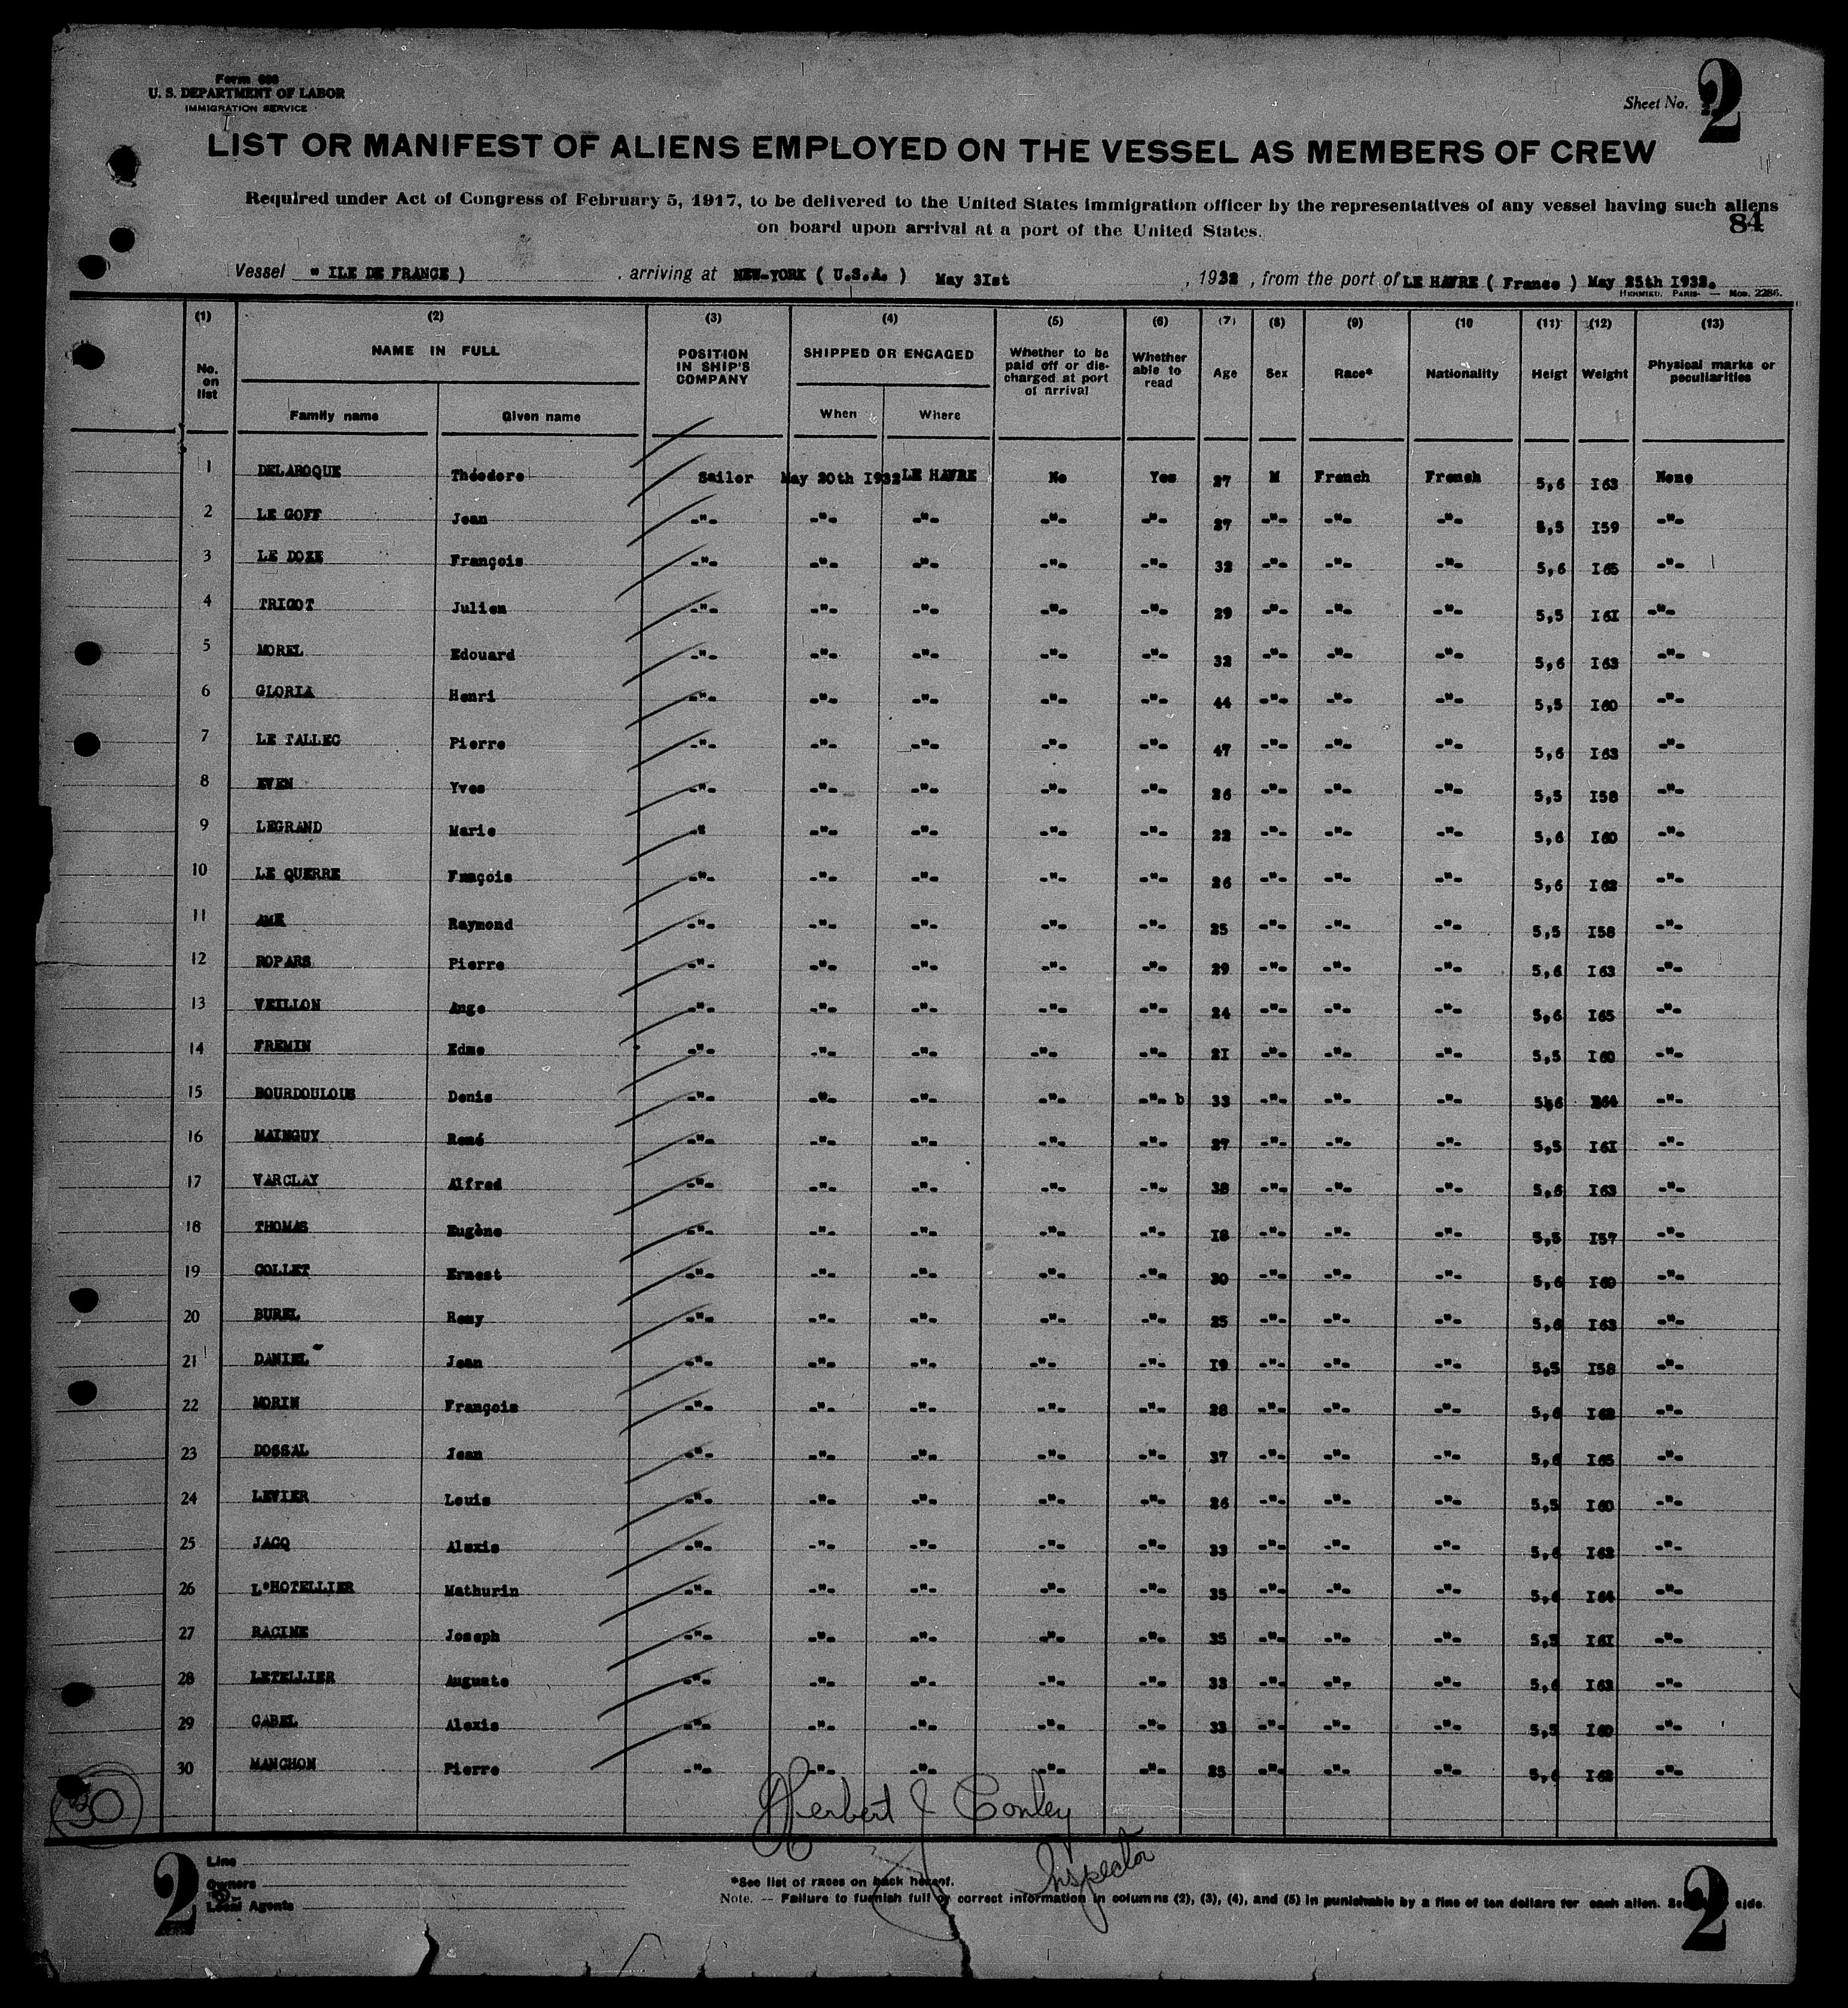 Form 680
U. S. DEPARTMENT OF LABOR
IMMIGRATION SERVICE
Sheet No. 2
LIST OR MANIFEST OF ALIENS EMPLOYED ON THE VESSEL AS MEMBERS OF CREW
Required under Act of Congress of February 5, 1917, to be delivered to the United States immigration officer by the representatives of any vessel having such aliens
on board upon arrival at a port of the United States.
84
Vessel " ILE DE FRANCE ) , arriving at NEW-YORK ( U.S.A. ) May 3Ist , 1932 , from the port of LE HAVRE ( France ) May 25th I932.
HERMIEU. PARIS. — Mod. 2286.
(1) (2) (3) (4) (5) (6) (7) (8) (9) (10 (11) (12) (13)
No. on list NAME IN FULL POSITION IN SHIP'S COMPANY SHIPPED OR ENGAGED Whether to be paid off or discharged at port of arrival Whether able to read Age Sex Race* Nationality Heigt Weight Physical marks or peculiarities
Family name Given name When Where
1 DELAROQUE Théodore Sailor May 20th I932 LE HAVRE No Yes 27 M French French 5,6 I63 None
2 LE GOFF Jean -"- -"- -"- -"- -"- 27 -"- -"- -"- 5,5 I59 -"-
3 LE DOZE François -"- -"- -"- -"- -"- 32 -"- -"- -"- 5,6 I65 -"-
4 TRIGOT Julien -"- -"- -"- -"- -"- 29 -"- -"- -"- 5,5 I6I -"-
5 MOREL Edouard -"- -"- -"- -"- -"- 32 -"- -"- -"- 5,6 I63 -"-
6 GLORIA Henri -"- -"- -"- -"- -"- 44 -"- -"- -"- 5,5 I60 -"-
7 LE TALLEC Pierre -"- -"- -"- -"- -"- 47 -"- -"- -"- 5,6 I63 -"-
8 EVEN Yves -"- -"- -"- -"- -"- 26 -"- -"- -"- 5,5 I58 -"-
9 LEGRAND Marie -" -"- -"- -"- -"- 22 -"- -"- -"- 5,6 I60 -"-
10 LE QUERRE Fraçois -"- -"- -"- -"- -"- 26 -"- -"- -"- 5,6 I62 -"-
11 AME Raymond -"- -"- -"- -"- -"- 25 -"- -"- -"- 5,5 I58 -"-
12 ROPARS Pierre -"- -"- -"- -"- -"- 29 -"- -"- -"- 5,6 I63 -"-
13 VEILLON Ange -"- -"- -"- -"- -"- 24 -"- -"- -"- 5,6 I65 -"-
14 FREMIN Edme -"- -"- -"- -"- -"- 2I -"- -"- -"- 5,5 I60 -"-
15 BOURDOULOUS Denis -"- -"- -"- -"- -"- b 33 -"- -"- -"- 5,6 I64 -"-
16 MAINGUY René -"- -"- -"- -"- -"- 27 -"- -"- -"- 5,5 I6I -"-
17 VARCLAY Alfred -"- -"- -"- -"- -"- 38 -"- -"- -"- 5,6 I63 -"-
18 THOMAS Eugène -"- -"- -"- -"- -"- I8 -"- -"- -"- 5,5 I57 -"-
19 COLLET Ernest -"- -"- -"- -"- -"- 30 -"- -"- -"- 5,6 I60 -"-
20 BUREL Remy -"- -"- -"- -"- -"- 25 -"- -"- -"- 5,6 I63 -"-
21 DANIEL Jean -"- -"- -"- -"- -"- I9 -"- -"- -"- 5,5 I58 -"-
22 MORIN François -"- -"- -"- -"- -"- 28 -"- -"- -"- 5,6 I62 -"-
23 DOSSAL Jean -"- -"- -"- -"- -"- 37 -"- -"- -"- 5,6 I65 -"-
24 LEVIER Louis -"- -"- -"- -"- -"- 26 -"- -"- -"- 5,5 I60 -"-
25 JACQ Alexis -"- -"- -"- -"- -"- 33 -"- -"- -"- 5,6 I62 -"-
26 L'HOTELLIER Mathurin -"- -"- -"- -"- -"- 35 -"- -"- -"- 5,6 I64 -"-
27 RACINE Joseph -"- -"- -"- -"- -"- 35 -"- -"- -"- 5,5 I6I -"-
28 LETELLIER Auguste -"- -"- -"- -"- -"- 33 -"- -"- -"- 5,6 I63 -"-
29 CABEL Alexis -"- -"- -"- -"- -"- 33 -"- -"- -"- 5,5 I60 -"-
30 MANCHON Pierre -"- -"- -"- -"- -"- 25 -"- -"- -"- 5,6 I62 -"-
30
Herbert J Conley
Inspector
2 Line
Owners
Local Agents
*See list of races on back hereof.
Note. — Failure to furnish full or correct information in columns (2), (3), (4), and (5) in punishable by a fine of ten dollars for each alien. See side.
2